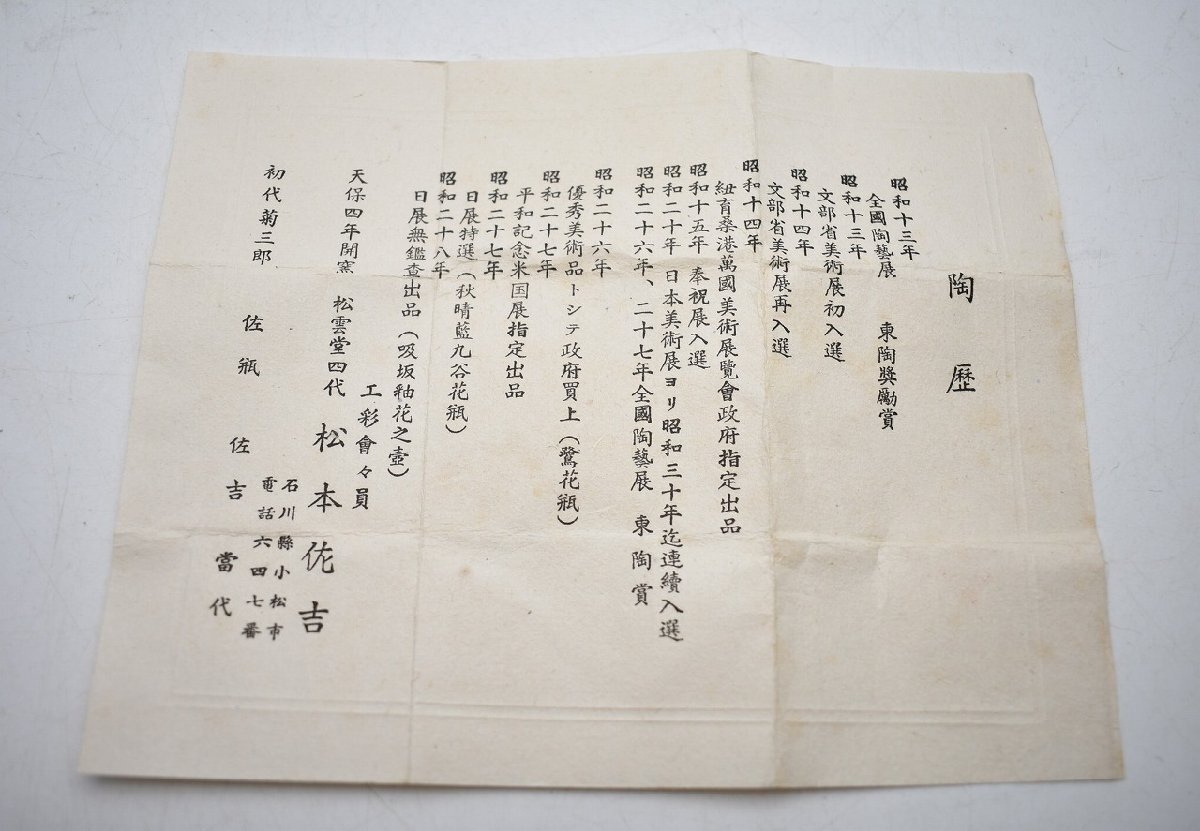 陶歴
昭和十三年
全國陶藝展 東陶奬勵賞
昭和十三年
文部省美術展初入選
昭和十四年
文部省美術展再入選
昭和十四年
紐育桑港萬國美術展覽會政府指定出品
昭和十五年 奉祝展入選
昭和二十年 日本美術展ヨリ昭和三十年迄連續入選
昭和二十六年、二十七年全國陶藝展 東陶賞
昭和二十六年
優秀美術品トシテ政府買上(鷺花瓶)
昭和二十七年
平和記念米国展指定出品
昭和二十七年
日展特選(秋晴藍九谷花瓶)
昭和二十八年
日展無鑑查出品(吸坂釉花之壺)
工彩會々員
天保四年開窯 松雲堂四代 松本佐吉
石川縣小松市
電話六四七番
初代菊三郎 佐瓶 佐吉 當代